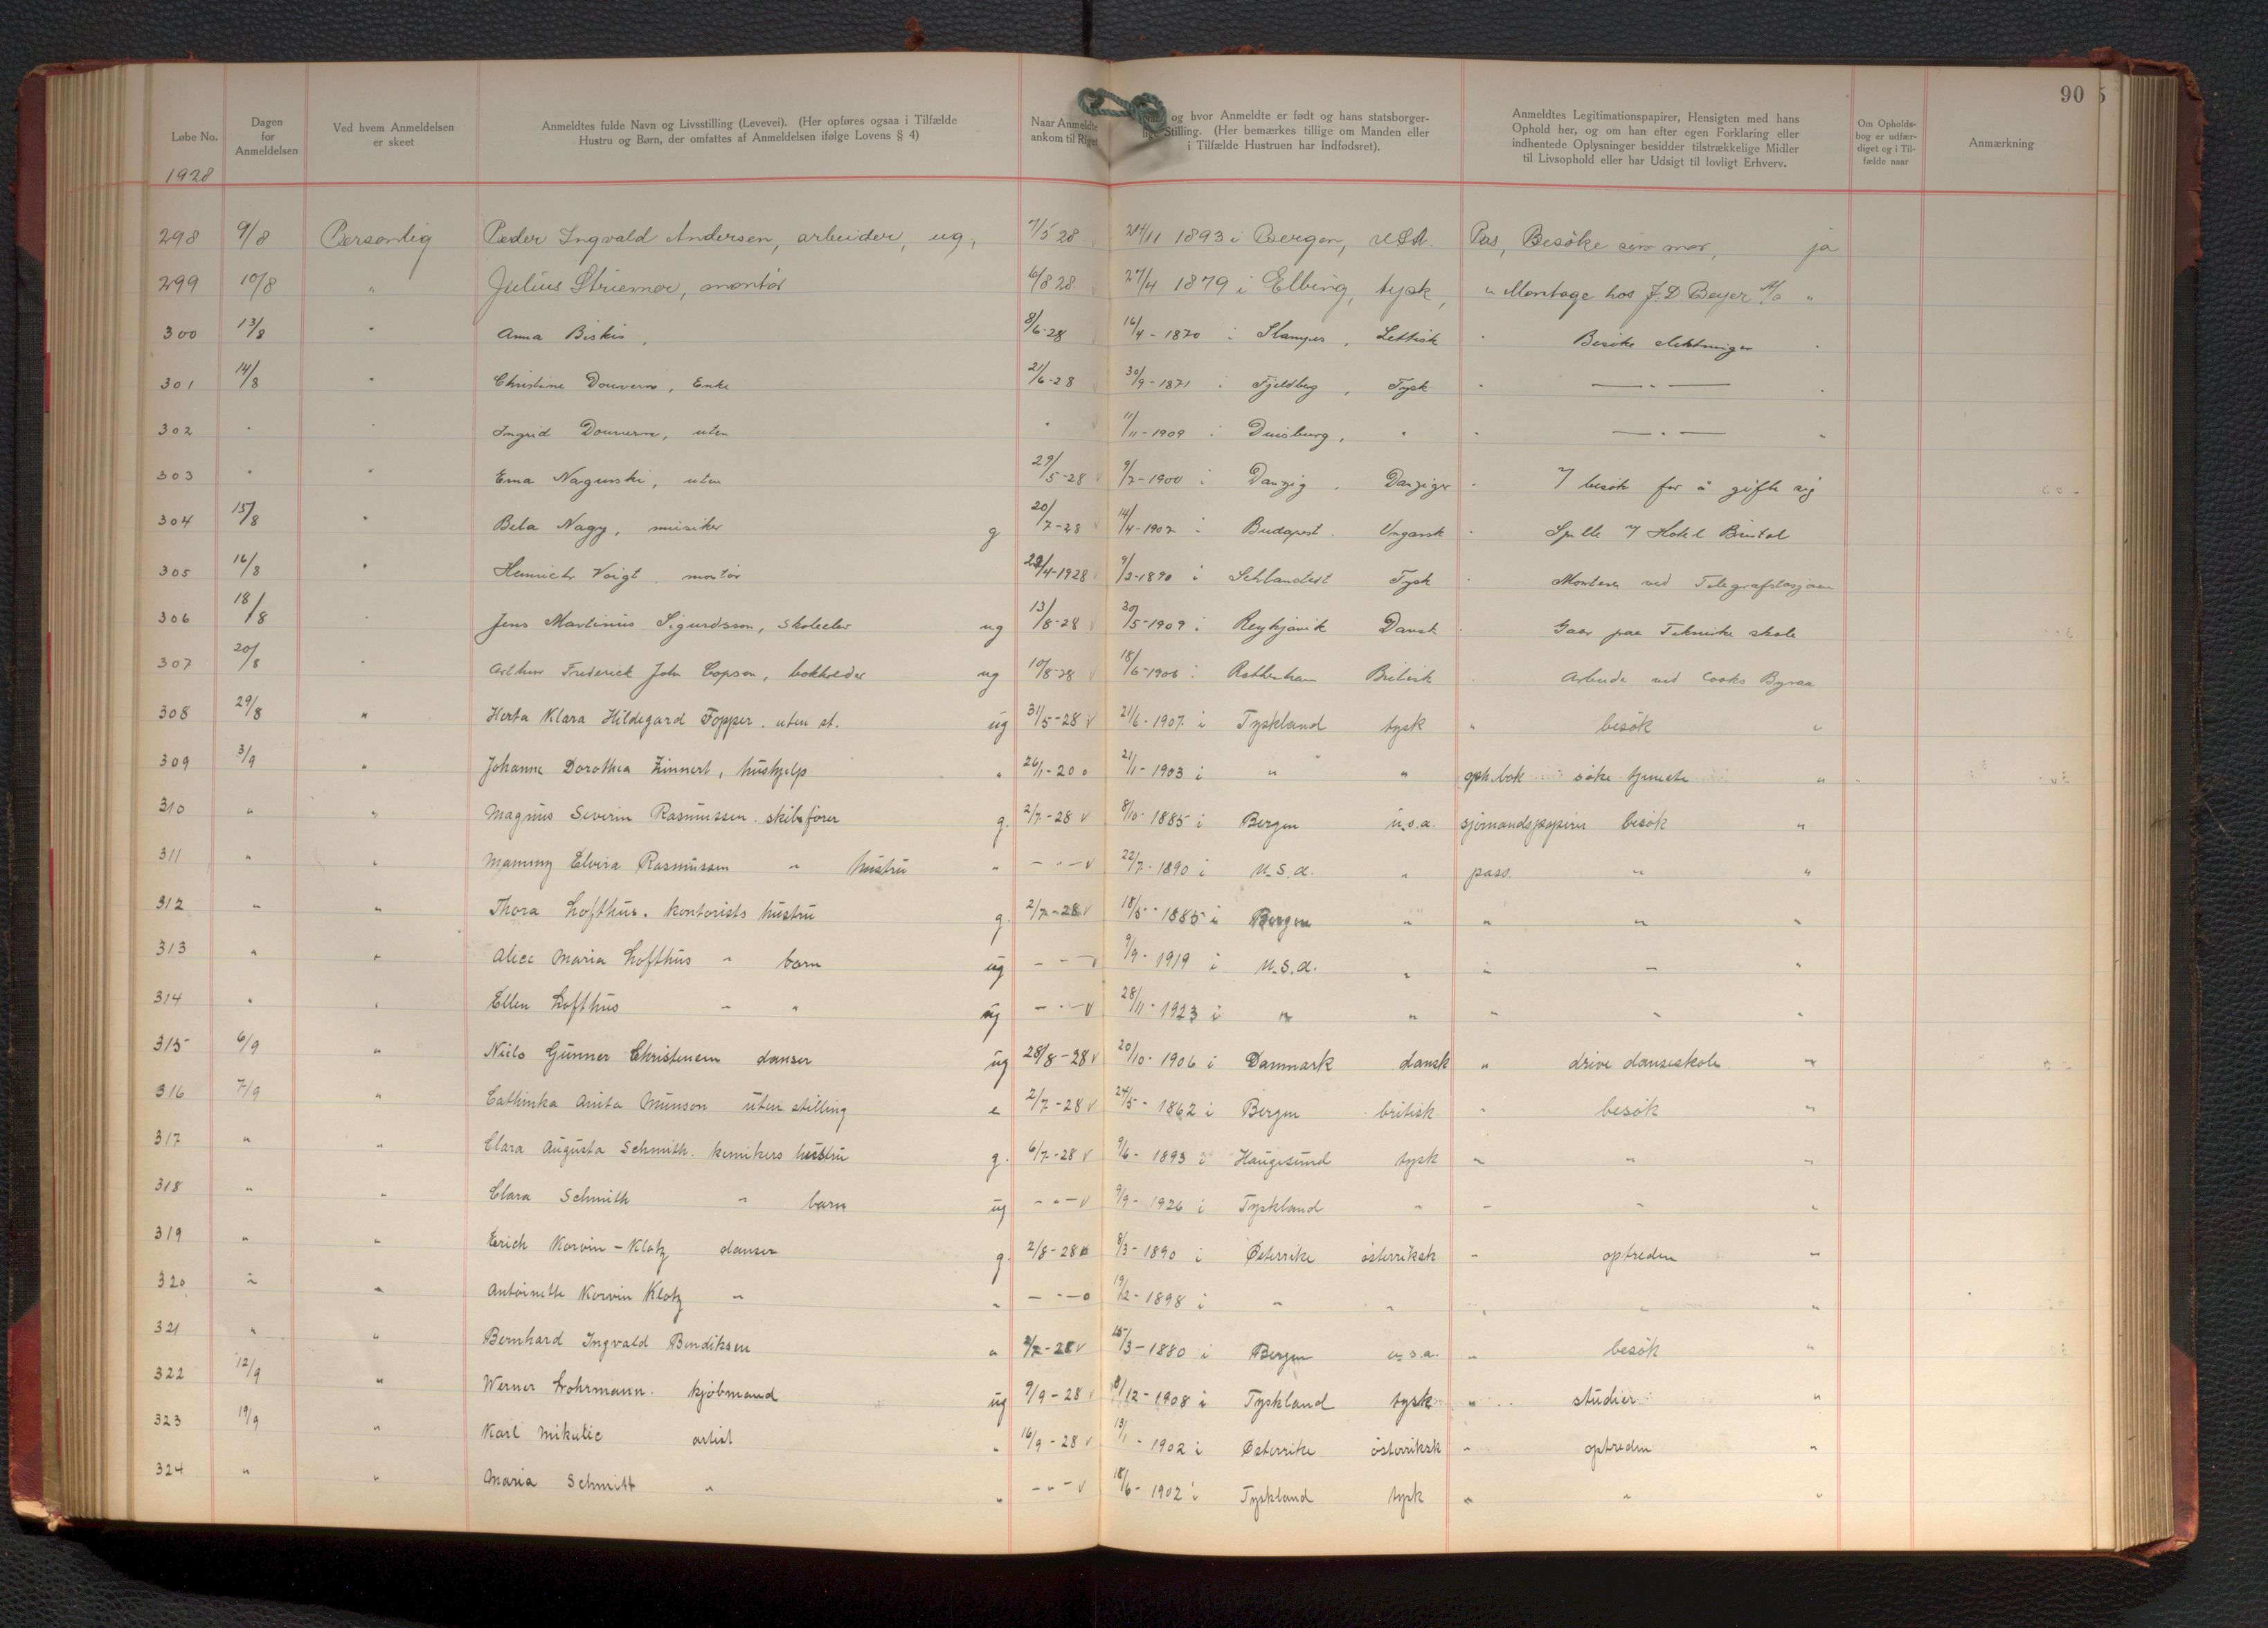 90 5
Løbe No.
Dagen for Anmeldelsen
Ved hvem Anmeldelsen er skeet
Anmeldtes fulde Navn og Livsstilling (Levevei). (Her opføres ogsaa i Tilfælde Hustru og Børn, der omfattes af Anmeldelsen ifølge Lovens § 4)
Naar Anmeldte ankom til Riget
og hvor Anmeldte er født og hans statsborger- Stilling. (Her bemærkes tillige om Manden eller i Tilfælde Hustruen har Indfødsret).
Anmeldtes Legitimationspapirer, Hensigten med hans Ophold her, og om han efter egen Forklaring eller indhentede Oplysninger besidder tilstrækkelige Midler til Livsophold eller har Udsigt til lovligt Erhverv.
Om Opholds- bog er udfær- diget og i Til- fælde naar
Anmærkning
1928
298 9/8 Personlig Peder Ingvald Andersen, arbeider, ug. 7/5 28 24/11 1893 i Bergen, USA. Pas, Besöke sin mor, ja
299 10/8 " Julius Striemer, montör 6/8 28 27/4 1879 i Elbing, tysk, " Montage hos J.D. Beyer A/S "
300 13/8 " Anna Biskis, 8/6-28 16/4-1870 i Lettisk " Besöke slektninger "
301 14/8 " Christine Douvern, Enke 21/6-28 30/9-1871 i Fjeldberg, Tysk " — " — "
302 " " Ingrid Douvern, uten " 11/11-1909 i Duisburg, " " — " — "
303 " " Erna Nagurski, uten 29/5-28 v 9/7-1900 i Danzig, Danziger " I besök for å gifte sig
304 15/8 " Bela Nagy, musiker g 20/7-28 v 14/4-1902 i Budapest. Ungarsk " Spille I Hotel Bristol
305 16/8 " Heinrich Voigt, montör 28/4-1928 9/2-1890 i Tysk " Montere ved Telegrafstasjonen
306 18/8 " Jens Martinus Sigurdsson, skoleelev ug 13/8-28 v 30/5-1909 i Reykjavik Dansk " Gaar paa Tekniske skole
307 20/8 " Arthur Frederick John Copson, bokholder ug 10/8-28 v 18/6-1906 i Britisk Arbeide ved Cooks Byraa
308 29/8 " Herta Klara Hildegard Fopper. uten st. ug 31/5-28 v 21/6-1907 i Tyskland tysk " besök "
309 3/9 " Johanne Dorothea Zinnert, hushjelp " 26/1-20 o 21/1-1903 i " " oph.bok söke tjeneste "
310 " " Magnus Severin Rasmussen. skibsförer g. 2/7-28 v 8/10-1885 i Bergen u.s.a. sjömandspapirer besök "
311 " " Mammy Elvira Rasmussen " hustru " — " — v 22/7-1890 i U.S.A. " pass. " "
312 " " Thora Lofthus. kontorists hustru g. 2/7-28 v 18/5-1885 i Bergen " " " "
313 " " Alice Maria Lofthus " barn ug — " — v 9/9-1919 i U.S.A. " " " "
314 " " Ellen Lofthus " " ug — " — v 28/11-1923 i " " " " "
315 6/9 " Niels Gunner Christensen danser ug 28/8-28 v 20/10-1906 i Danmark dansk " drive danseskole "
316 7/9 " Cathinka Anita Munson uten stilling e 2/7-28 v 24/5-1862 i Bergen britisk " besök "
317 " " Clara Augusta Schmith. kemikers hustru g. 6/7-28 v 9/6-1893 i Haugesund tysk " " "
318 " " Clara Schmith " barn ug — " — v 9/9-1926 i Tyskland " " " "
319 " " Erich Korvin-Klotz danser g. 2/8-28 8/3-1890 i Østerrike österriksk " optreden "
320 " " Antoinette Korvin Klotz " " — " — o 19/2-1898 i " " " " "
321 " " Bernhard Ingvald Bendiksen " 2/7-28 v 15/3-1880 i Bergen u.s.a. " besök "
322 12/9 " Werner Lohrmann. kjöbmand ug 9/9-28 v 8/12-1908 i Tyskland tysk " studier "
323 19/9 " Karl Mikulic artist " 16/9-28 v 13/1-1902 i Østerrike österriksk " optreden "
324 " " Maria Schmitt " " — " — v 18/6-1902 i Tyskland tysk " " "